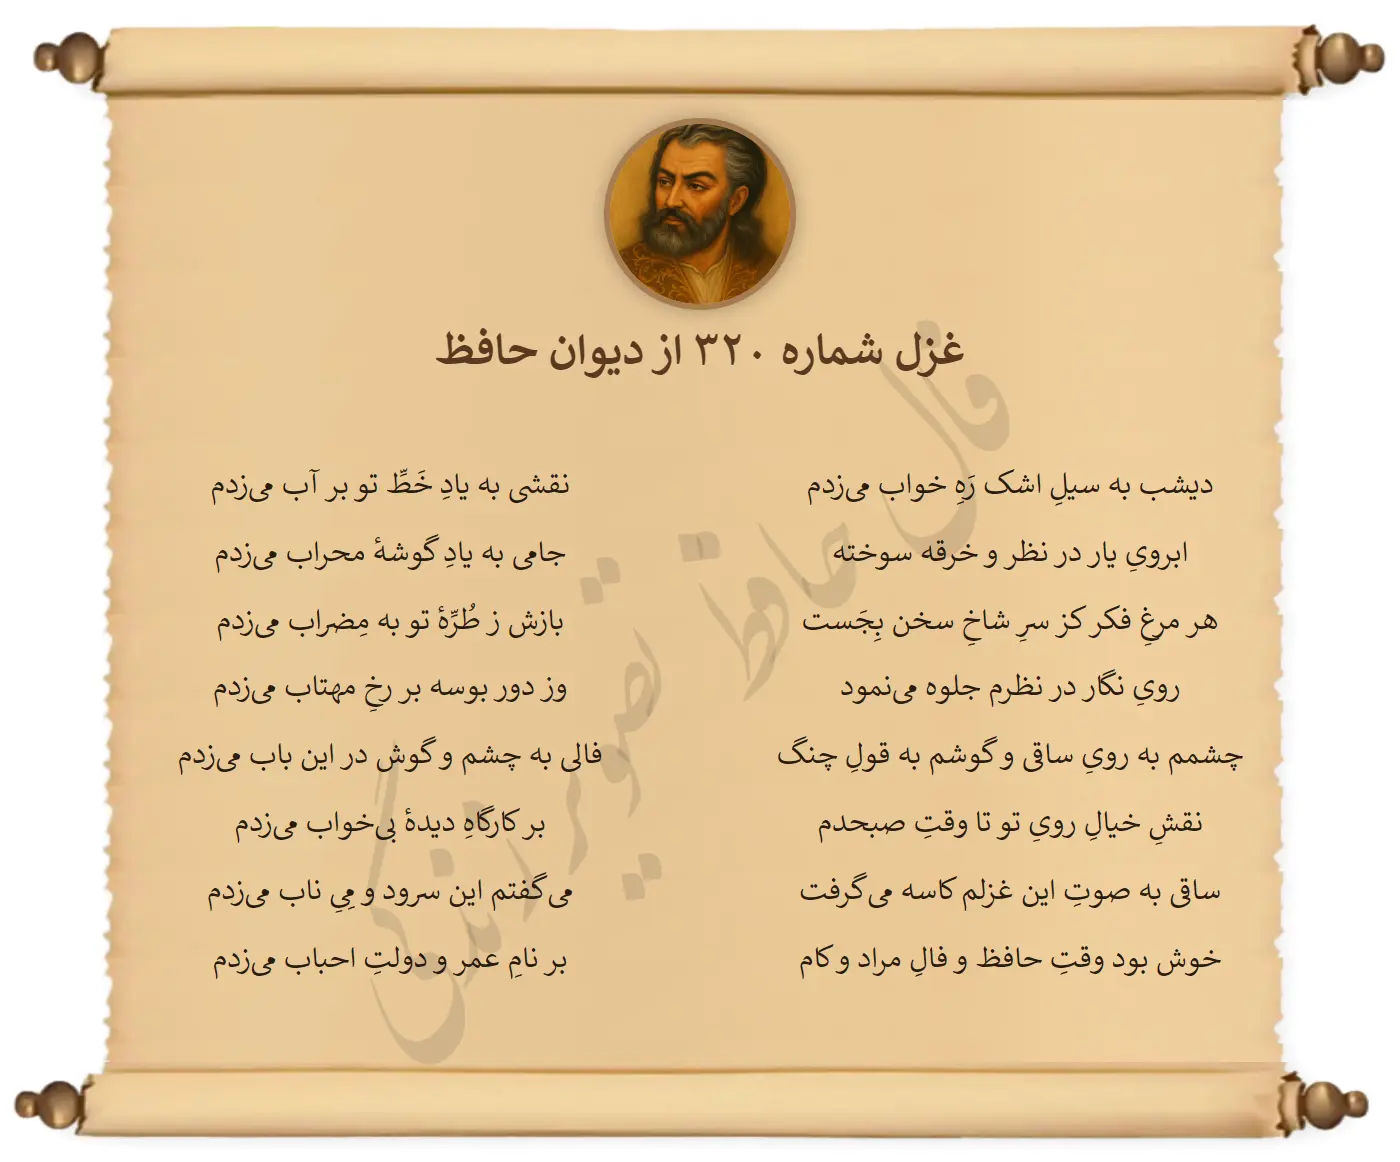 غزل شماره ۳۲۰ از دیوان حافظ
دیشب به سیلِ اشک رَهِ خواب می‌زدم
نقشی به یادِ خَطِّ تو بر آب می‌زدم
ابرویِ یار در نظر و خرقه سوخته
جامی به یادِ گوشهٔ محراب می‌زدم
هر مرغِ فکر کز سرِ شاخِ سخن بِجَست
بازش ز طُرِّهٔ تو به مِضراب می‌زدم
رویِ نگار در نظرم جلوه می‌نمود
وز دور بوسه بر رخِ مهتاب می‌زدم
چشمم به رویِ ساقی و گوشم به قولِ چنگ
فالی به چشم و گوش در این باب می‌زدم
نقشِ خیالِ رویِ تو تا وقتِ صبحدم
بر کارگاهِ دیدهٔ بی‌خواب می‌زدم
ساقی به صوتِ این غزلم کاسه می‌گرفت
می‌گفتم این سرود و مِیِ ناب می‌زدم
خوش بود وقتِ حافظ و فالِ مراد و کام
بر نامِ عمر و دولتِ احباب می‌زدم
فال حافظ تصویر زندگی